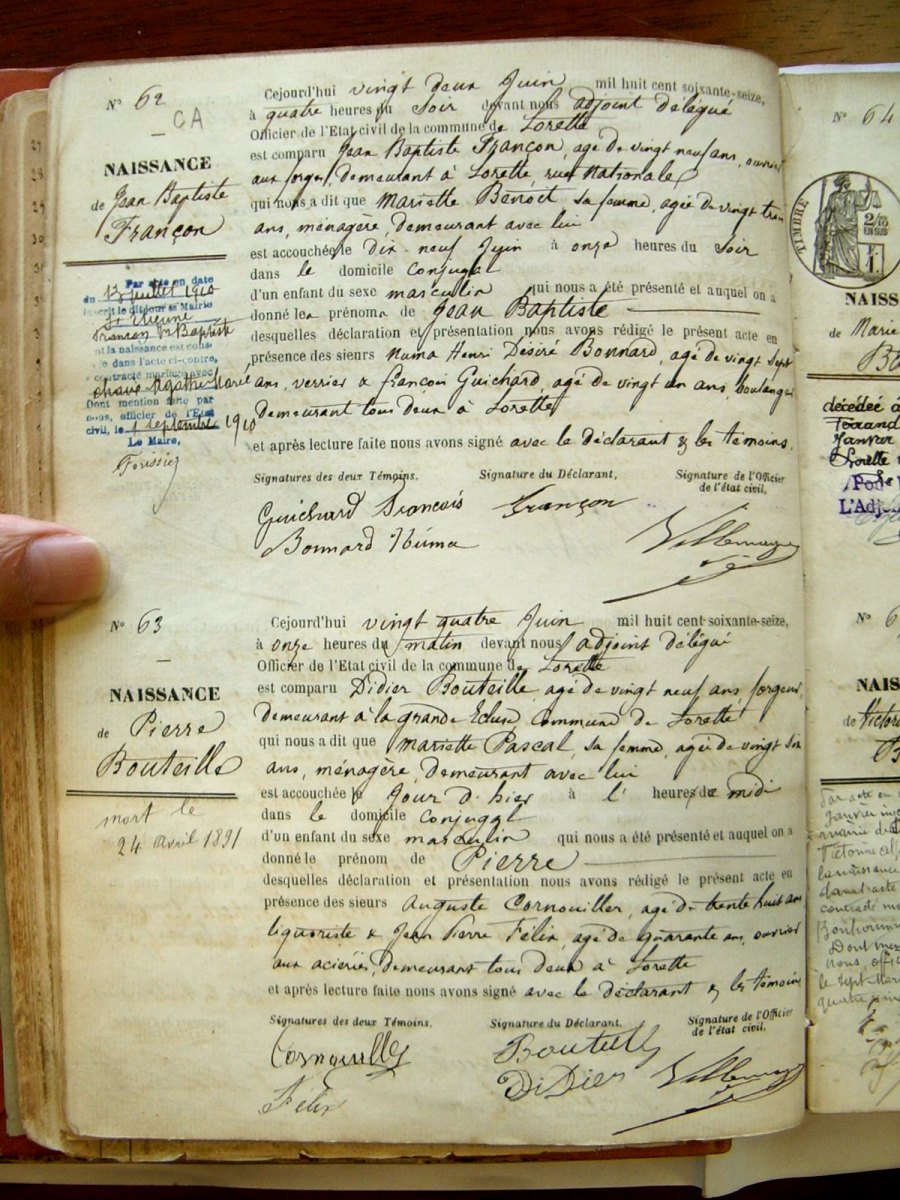 N° 62
CA
NAISSANCE
de Jean Baptiste
Françon
Par acte en date
du 13 juillet 1910
inscrit le dit jour à Mairie
St Etienne
Françon Jn Baptiste
dont la naissance est cons-
tatée dans l'acte ci-contre,
a contracté mariage avec
Agathe Marie
Dont mention faite par
nous, officier de l'Etat
civil, le 1 septembre 1910
Le Maire,
Cejourd'hui vingt deux Juin mil huit cent soixante-seize,
à quatre heures du Soir devant nous adjoint délégué
Officier de l'Etat civil de la commune de Lorette
est comparu Jean Baptiste Françon, agé de vingt neuf ans, ouvrier
aux forges, demeurant à Lorette, rue Nationale
qui nous a dit que Mariette Benoît sa femme, agée de vingt trois
ans, ménagère, demeurant avec lui
est accouchée le dix-neuf Juin à onze heures du Soir
dans le domicile conjugal
d'un enfant du sexe masculin qui nous a été présenté et auquel on a
donné les prénoms de Jean Baptiste
desquelles déclaration et présentation nous avons rédigé le présent acte en
présence des sieurs Numa Henri Désiré Bonnard, agé de vingt sept
ans, verrier & françois Guichard, agé de vingt un ans, boulanger
demeurant tous deux à Lorette
et après lecture faite nous avons signé avec le déclarant & les témoins.
Signatures des deux Témoins, Signature du Déclarant, Signature de l'Officier
de l'état civil,
Guichard François Françon
Bonnard Numa
N° 63
NAISSANCE
de Pierre
Bouteille
mort le
24 avril 1891
Cejourd'hui vingt quatre Juin mil huit cent soixante-seize,
à onze heures du matin devant nous adjoint délégué
Officier de l'Etat civil de la commune de Lorette
est comparu Didier Bouteille agé de vingt neuf ans, forgeur,
demeurant à la grande Ecluse Commune de Lorette
qui nous a dit que Mariette Pascal, sa femme, agée de vingt six
ans, ménagère, demeurant avec lui
est accouchée le Jour d'hier à l' heure de midi
dans le domicile conjugal
d'un enfant du sexe masculin qui nous a été présenté et auquel on a
donné le prénom de Pierre
desquelles déclaration et présentation nous avons rédigé le présent acte en
présence des sieurs Auguste Cornouiller, agé de trente huit ans
liquoriste & Jean Pierre Félix, agé de quarante ans, ouvrier
aux aciéries, demeurant tous deux à Lorette
et après lecture faite nous avons signé avec le déclarant & les témoins
Signatures des deux Témoins, Signature du Déclarant, Signature de l'Officier
de l'état civil,
Bouteille
Didier
Félix
N° 64
TIMBRE
2/10
EN SUS
NAISS
de Marie
décédée à
Janvier
Lorette
L'Adj
N° 6
NAIS
de Victor